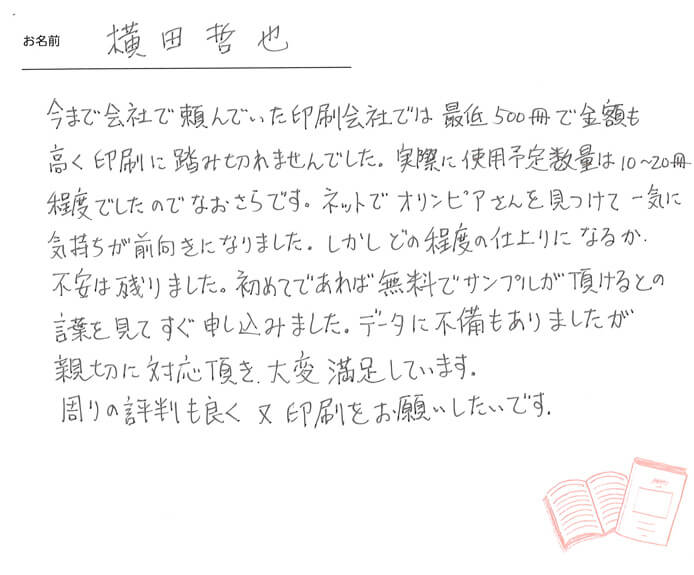 お名前 横田哲也
今まで会社で頼んでいた印刷会社では最低500冊で金額も
高く印刷に踏み切れませんでした。実際に使用予定数量は10~20冊
程度でしたのでなおさらです。ネットでオリンピアさんを見つけて一気に
気持ちが前向きになりました。しかしどの程度の仕上りになるか、
不安は残りました。初めてであれば無料でサンプルが頂けるとの
言葉を見てすぐ申し込みました。データに不備もありましたが
親切に対応頂き、大変満足しています。
周りの評判も良く又印刷をお願いしたいです。